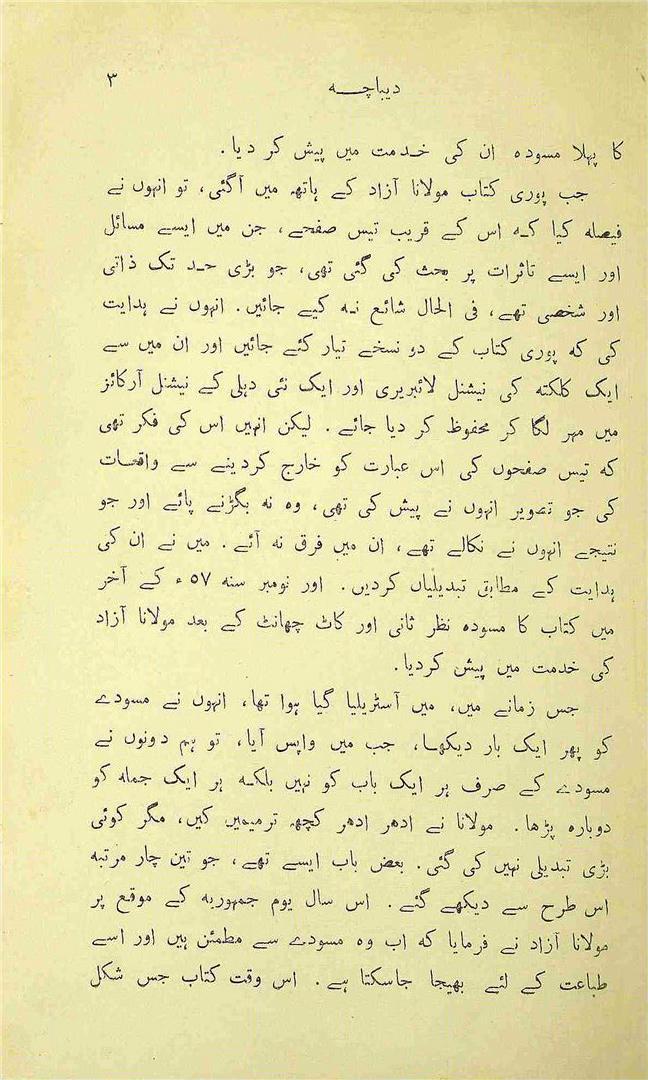 دیباچہ ۳
کا پہلا مسودہ ان کی خدمت میں پیش کر دیا.
جب پوری کتاب مولانا آزاد کے ہاتھ میں آگئی، تو انہوں نے
فیصلہ کیا کہ اس کے قریب تیس صفحے، جن میں ایسے مسائل
اور ایسے تاثرات پر بحث کی گئی تھی، جو بڑی حد تک ذاتی
اور شخصی تھے، فی الحال شائع نہ کیے جائیں. انہوں نے ہدایت
کی کہ پوری کتاب کے دو نسخے تیار کئے جائیں اور ان میں سے
ایک کلکتہ کی نیشنل لائبریری اور ایک نئی دہلی کے نیشنل آرکائز
میں مہر لگا کر محفوظ کر دیا جائے. لیکن انہیں اس کی فکر تھی
کہ تیس صفحوں کی اس عبارت کو خارج کردینے سے واقعات
کی جو تصویر انہوں نے پیش کی تھی، وہ نہ بگڑنے پائے اور جو
نتیجے انہوں نے نکالے تھے، ان میں فرق نہ آئے. میں نے ان کی
ہدایت کے مطابق تبدیلیاں کردیں. اور نومبر سنہ ۵۷ ء کے آخر
میں کتاب کا مسودہ نظر ثانی اور کاٹ چھانٹ کے بعد مولانا آزاد
کی خدمت میں پیش کردیا.
جس زمانے میں، میں آسٹریلیا گیا ہوا تھا، انہوں نے مسودے
کو پھر ایک بار دیکھا، جب میں واپس آیا، تو ہم دونوں نے
مسودے کے صرف ہر ایک باب کو نہیں بلکہ ہر ایک جملہ کو
دوبارہ پڑھا. مولانا نے ادھر ادھر کچھ ترمیمیں کیں، مگر کوئی
بڑی تبدیلی نہیں کی گئی. بعض باب ایسے تھے، جو تین چار مرتبہ
اس طرح سے دیکھے گئے. اس سال یوم جمہوریہ کے موقع پر
مولانا آزاد نے فرمایا کہ اب وہ مسودے سے مطمئن ہیں اور اسے
طباعت کے لئے بھیجا جاسکتا ہے. اس وقت کتاب جس شکل